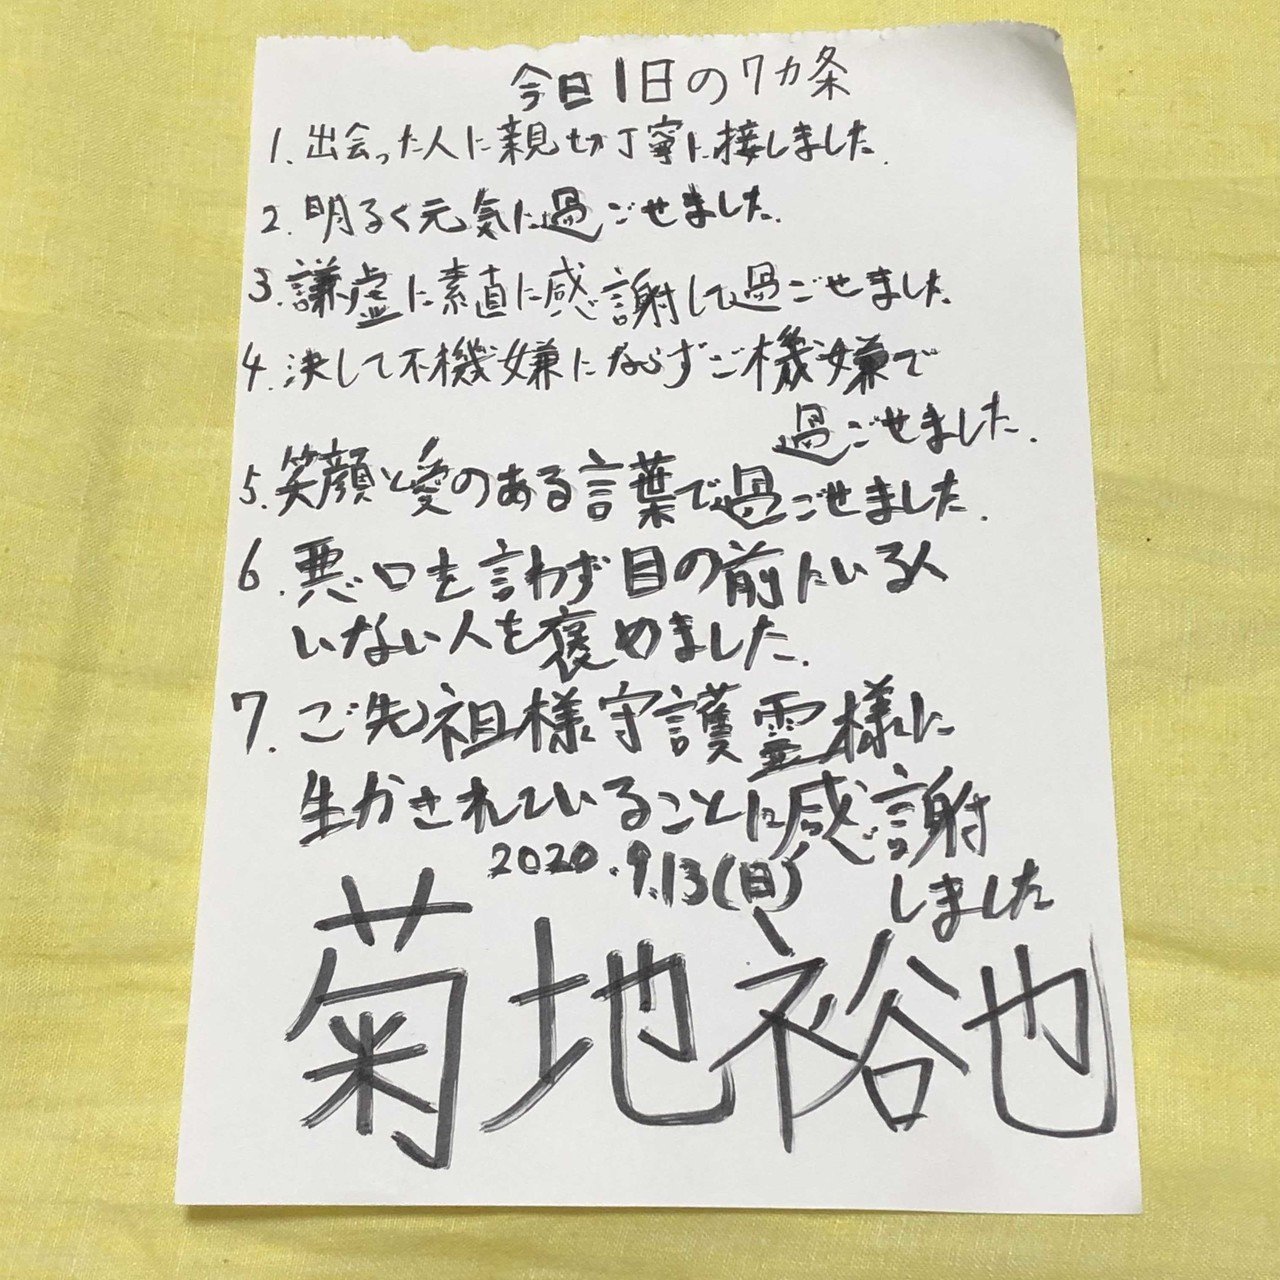 今日1日の7カ条
1.出会った人に親切丁寧に接しました.
2.明るく元気に過ごせました.
3.謙虚に素直に感謝して過ごせました
4.決して不機嫌にならずご機嫌で
過ごせました.
5.笑顔と愛のある言葉で過ごせました.
6.悪口を言わず目の前にいる人
いない人を褒めました.
7.ご先祖様守護霊様に
生かされていることに感謝
しました
2020.9.13(日)
菊地裕也